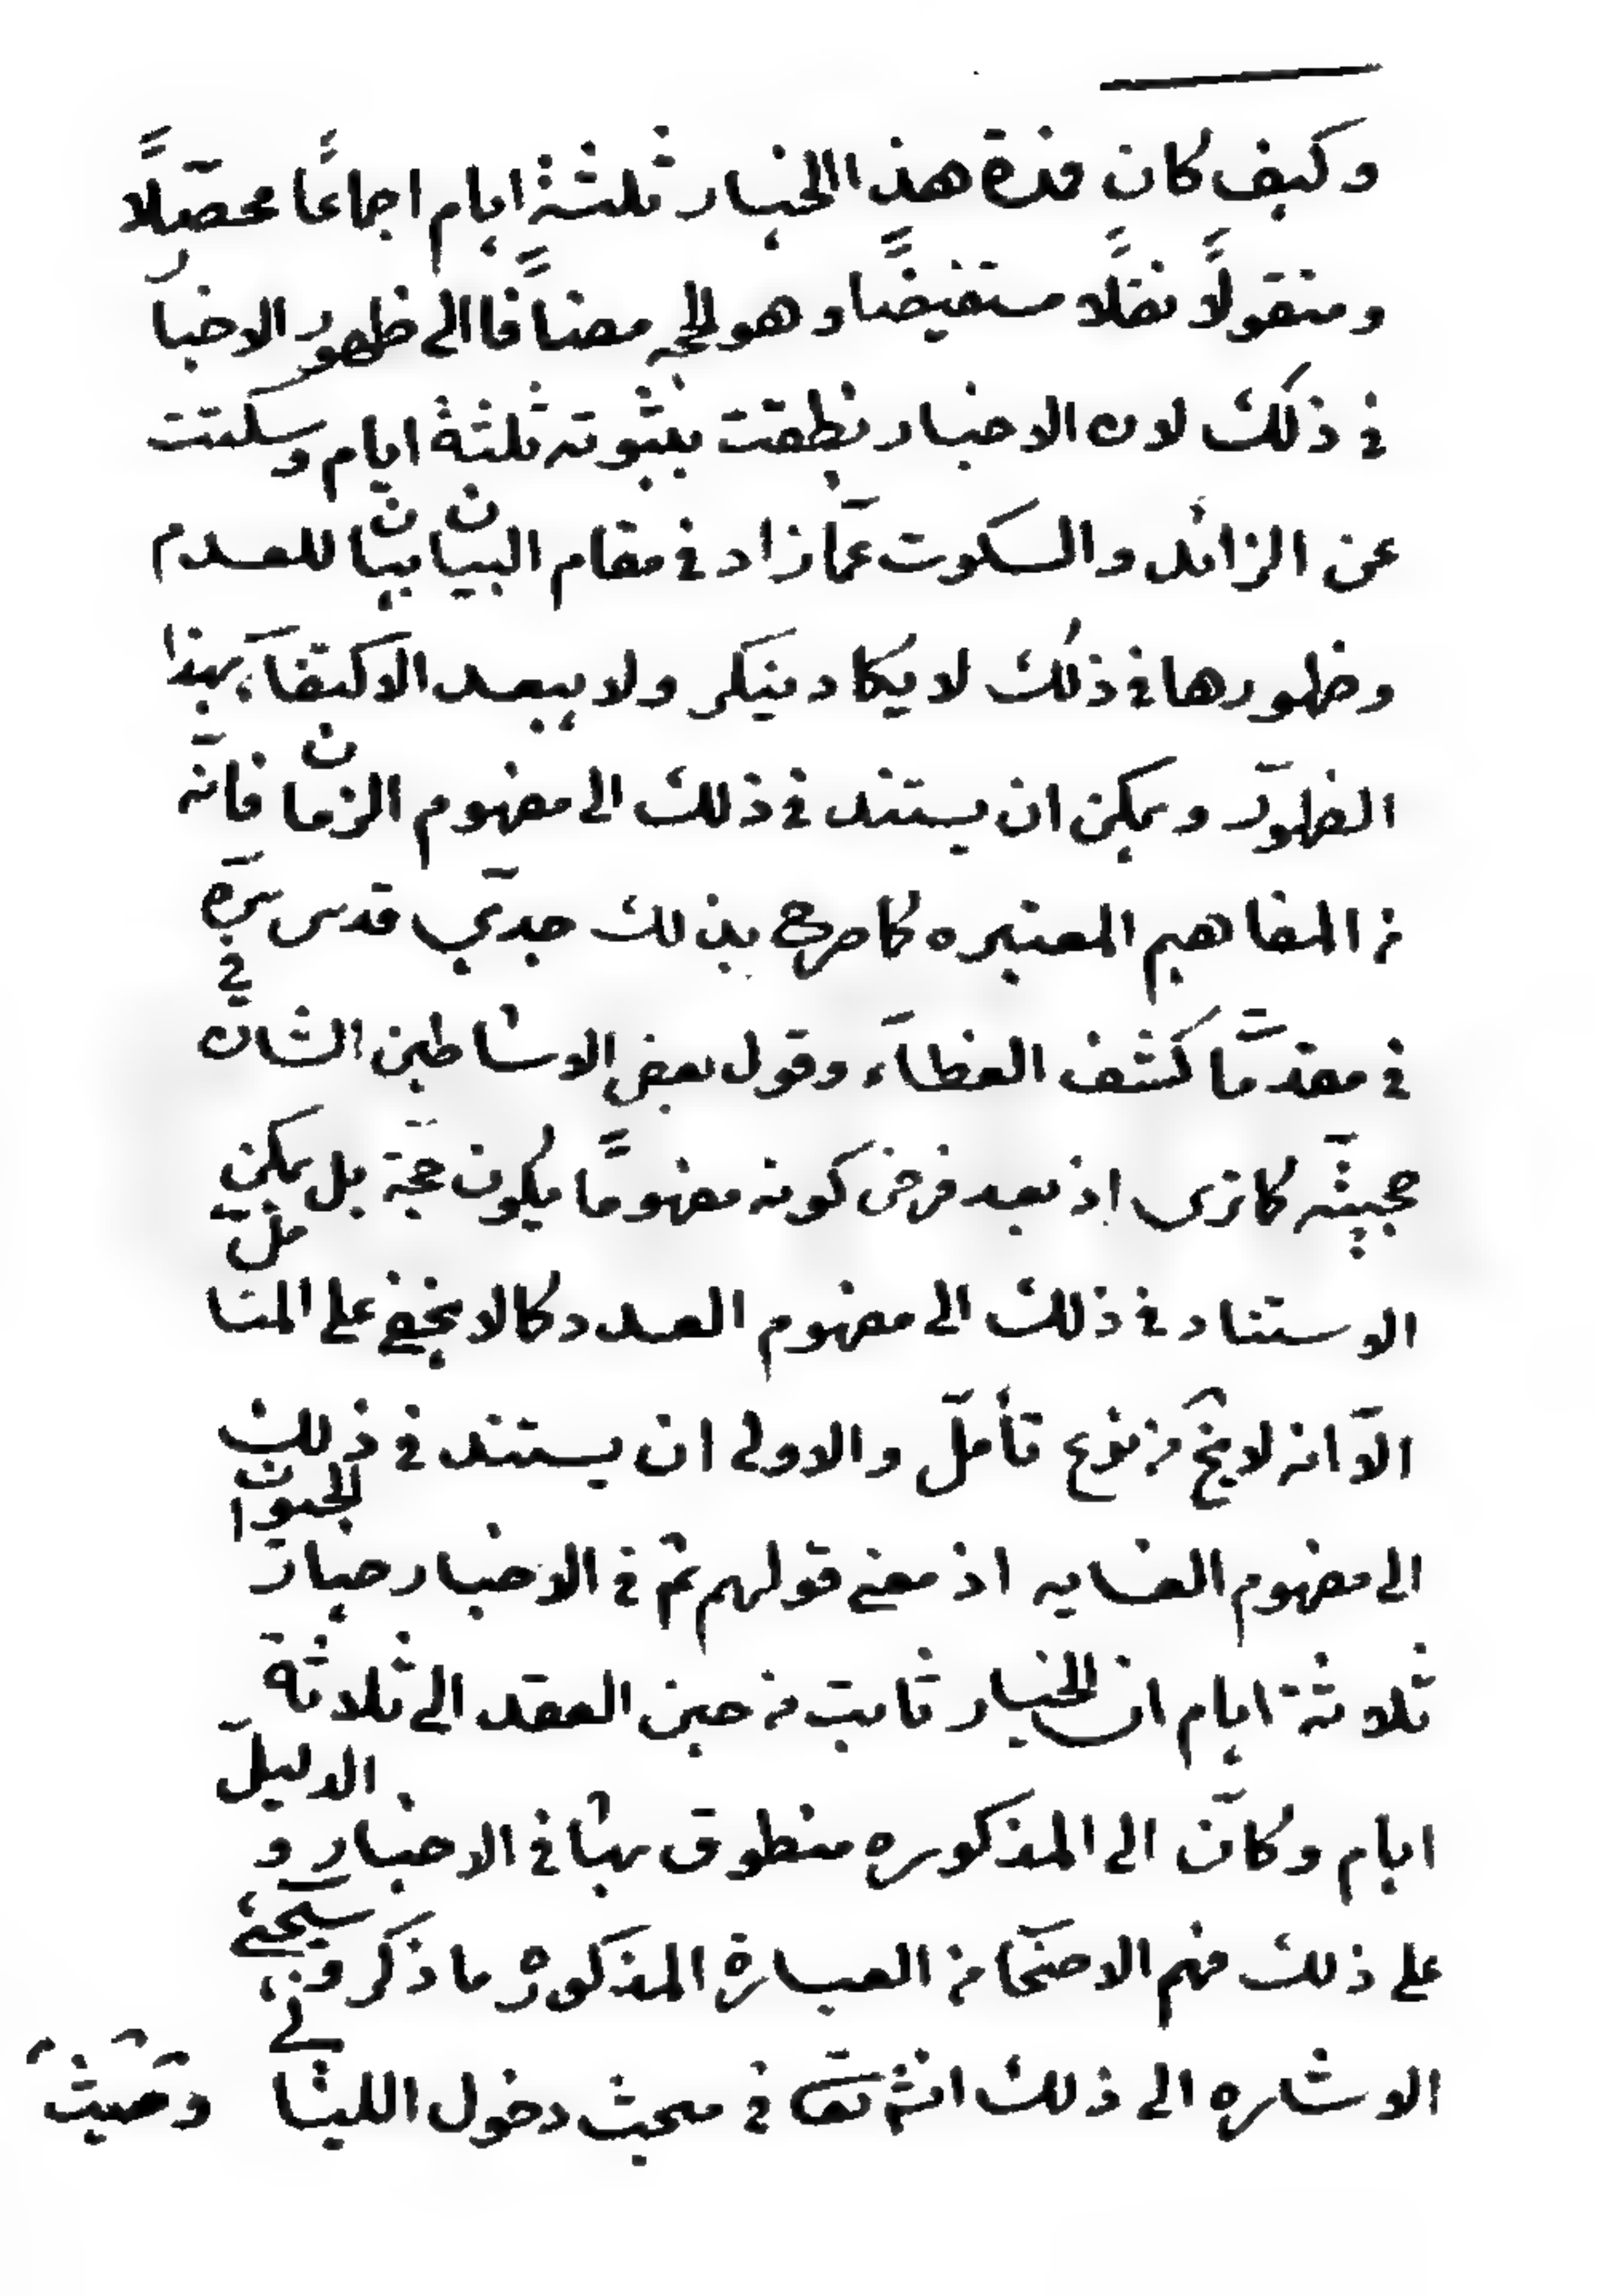 وكيف كان فمدة هذا الخيار ثلثة ايام اجماعًا محصّلًا
ومنقولًا نقلًا مستفيضًا وهو الحجه مضافًا الى ظهور الاخبار
في ذلك لان الاخبار نطقت بثبوته ثلثة ايام وسكتت
عن الزائد والسكوت عمّا زاد في مقام البيان بيان للعدم
وظهورها في ذلك لا يكاد ينكر ولا يبعد الاكتفاء بهذا
الظهور ويمكن ان يستند في ذلك الى مفهوم الزمان فانّه
من المفاهيم المعتبره كما صرح بذلك جدّي قدس سرّه
في مقدّمات كشف الغطاء وقول بعض الاساطين الشان في
حجيته كما ترى اذ بعد فرض كونه مفهومًا يكون حجّة بل يمكن
الاستناد في ذلك الى مفهوم العدد كما لا يخفى على المتأمّل
الّا انه لا يخ من نوع تأمّل والاولى ان يستند في ذلك
الى مفهوم الغايه اذ معنى قولهم ثم في الاخبار خيار الحيوان
ثلاثة ايام ان الخيار ثابت من حين العقد الى ثلاثة
ايام وكانّ الى المذكوره منطوق بها في الاخبار و الدليل
على ذلك فهم الاصحاب من العبارة المذكورة ما ذكر وسيجئ
الاشاره الى ذلك انش تعا في مبحث دخول الليالي